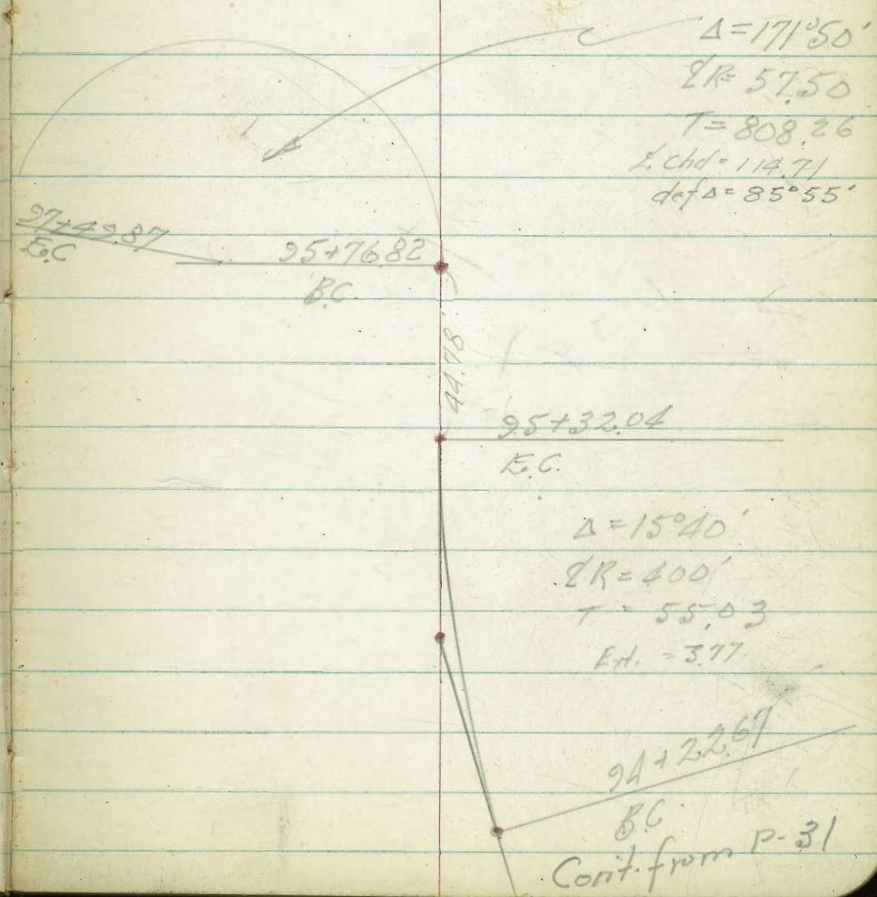 Δ=171°50'
℄R= 57.50
T= 808.26
L. Chd = 114.71
def Δ = 85°55'
97+49.87
E.C
95+76.82
B.C.
44.78'
95+32.04
E.C.
Δ = 15°40'
℄R = 400'
T = 55.03
Ext. = 3.77
94+22.67
B.C.
Cont. from P-31